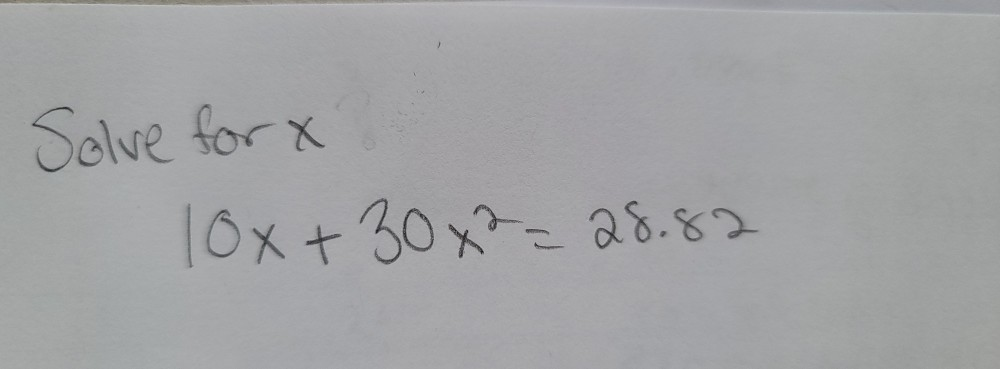 Solve for x
10x + 30x² = 28.82